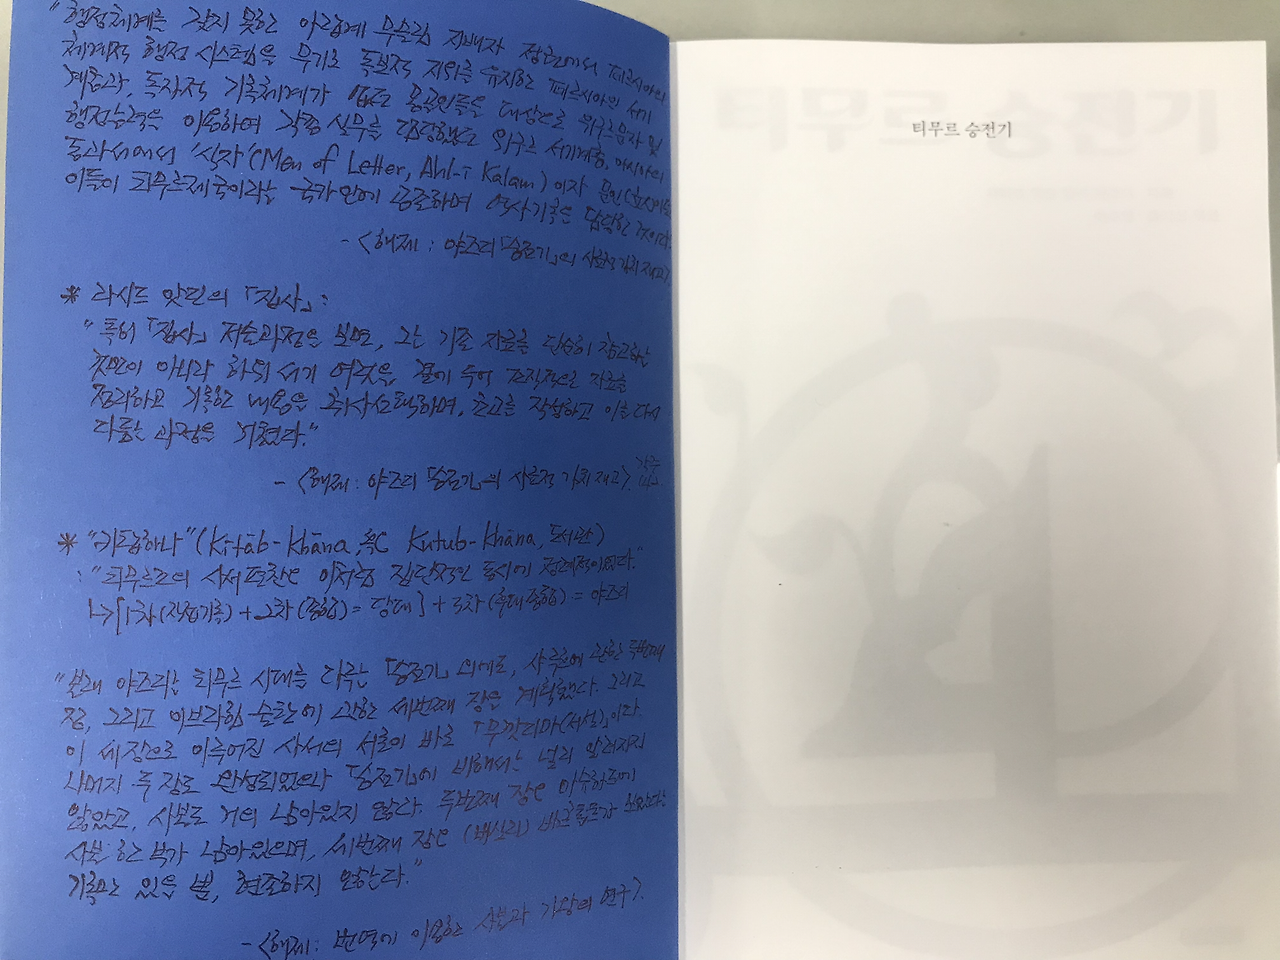 "행정체계를 갖지 못한 아랍계 무슬림 지배자 정권에서 페르시아의
체계적 행정 시스템을 무기로 독보적 지위를 유지한 페르시아의 서기
계층과, 독자적 기록체계가 없던 몽골인들을 대상으로 위구르문자 및
행정능력을 이용하여 각종 실무를 담당했던 위구르 서기계층,
동과 서에서 '식자'(Men of Letter, Ahl-i Kalam)이자 문인
이들이 티무르제국이라는 국가 안에 공존하며 역사기록을 담당한 것이다
- <해제: 야즈디 「승전기」의 사료적 가치 재고>
* 라시드 앗딘의 「집사」:
"특히 「집사」 저술과정을 보면, 그는 기존 자료를 단순히 참고하는
것만이 아니라 하위 서기 여럿을 곁에 두어 조직적으로 자료를
정리하고 기록한 내용을 취사선택하며, 초고를 작성하고 이를 다시
다듬는 과정을 거쳤다."
- <해제: 야즈디 「승전기」의 사료적 가치 재고>, 각주
* "키탑하나"(Kitāb-khāna, 혹은 Kutub-khāna, 도서관)
: "티무르조의 사서 편찬은 이처럼 집단적인 동시에 점레적이었다."
↳ [1차(직접기록) + 2차(종합) = 당대] + 3차(후대 종합) = 야즈디
"본래 야즈디는 티무르 시대를 다루는 「승전기」 외에도, 샤루흐에 관한 두번째
장, 그리고 이브라힘 술탄에 관한 세번째 장을 계획했다. 그리고
이 세 장으로 이루어진 사서의 서론이 바로 「무깟디마(서설)」이다.
나머지 두 장도 완성되었으나 「승전기」에 비해서는 널리 알려지지
않았고, 사본도 거의 남아있지 않다. 두번째 장은 이슬람
사본 한 부가 남아있으며, 세번째 장은
기록만 있을 뿐, 현존하지 않는다."
- <해제: 번역에 이용한 사본과 기왕의 연구>.
티무르 승전기